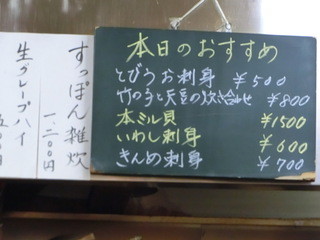 本日のおすすめ
とびうお刺身 ¥500
竹の子と天豆の炊き合わせ ¥800
本ミル貝 ¥1500
いわし刺身 ¥600
きんめ刺身 ¥700
すっぽん雑炊
一、二〇〇円
生グレープハイ